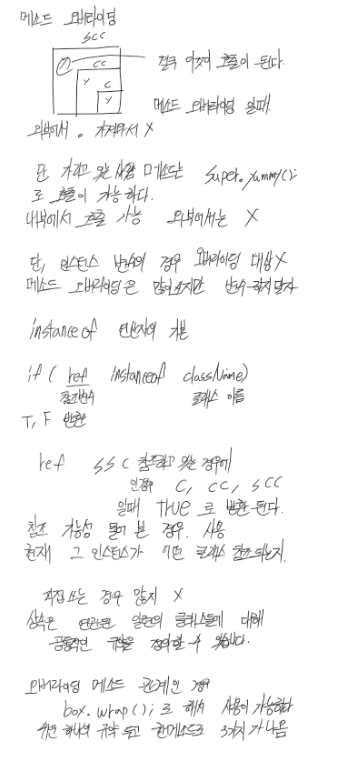 메소드 오버라이딩
SCC
CC
C
Y
Y
Y
결국 이것이 호출이 된다.
메소드 오버라이딩 일때
외부에서 . 가져와서 X
단 가리고 있는 상황 메소드는 super.yummy();
로 호출이 가능하다.
내부에서 호출 가능 외부에서는 X
단, 인스턴스 변수의 경우 오버라이딩 대상 X
메소드 오버라이딩은 많이 쓰지만 변수 하지 말자
instanceof 연산자의 기본
if ( ref instanceof className)
참조변수 클래스 이름
T, F 반환
ref SSC 참조하고 있는 경우에
C, CC, SCC
일때 True 로 반환 된다.
참조 가능성 물어 본 경우. 사용
현재 그 인스턴스가 어떤 클래스 참조 되는지.
직접 쓰는 경우 많지 X
상속은 연관된 일련의 클래스들에 대해
공통적인 규약을 정의할 수 있습니다.
오버라이딩 메소드 관계인 경우
box.wrap(); 로 해서 사용이 가능하다
위는 하나의 규약 두고 한메소드로 3가지가 나옴